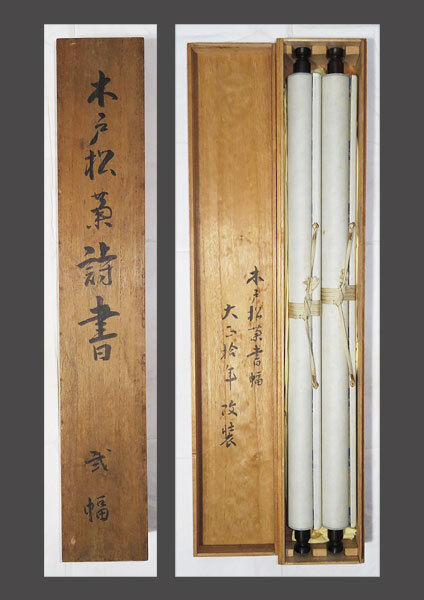 木戸松菊詩書 弐幅
木戸松菊書幅
大正拾年改装